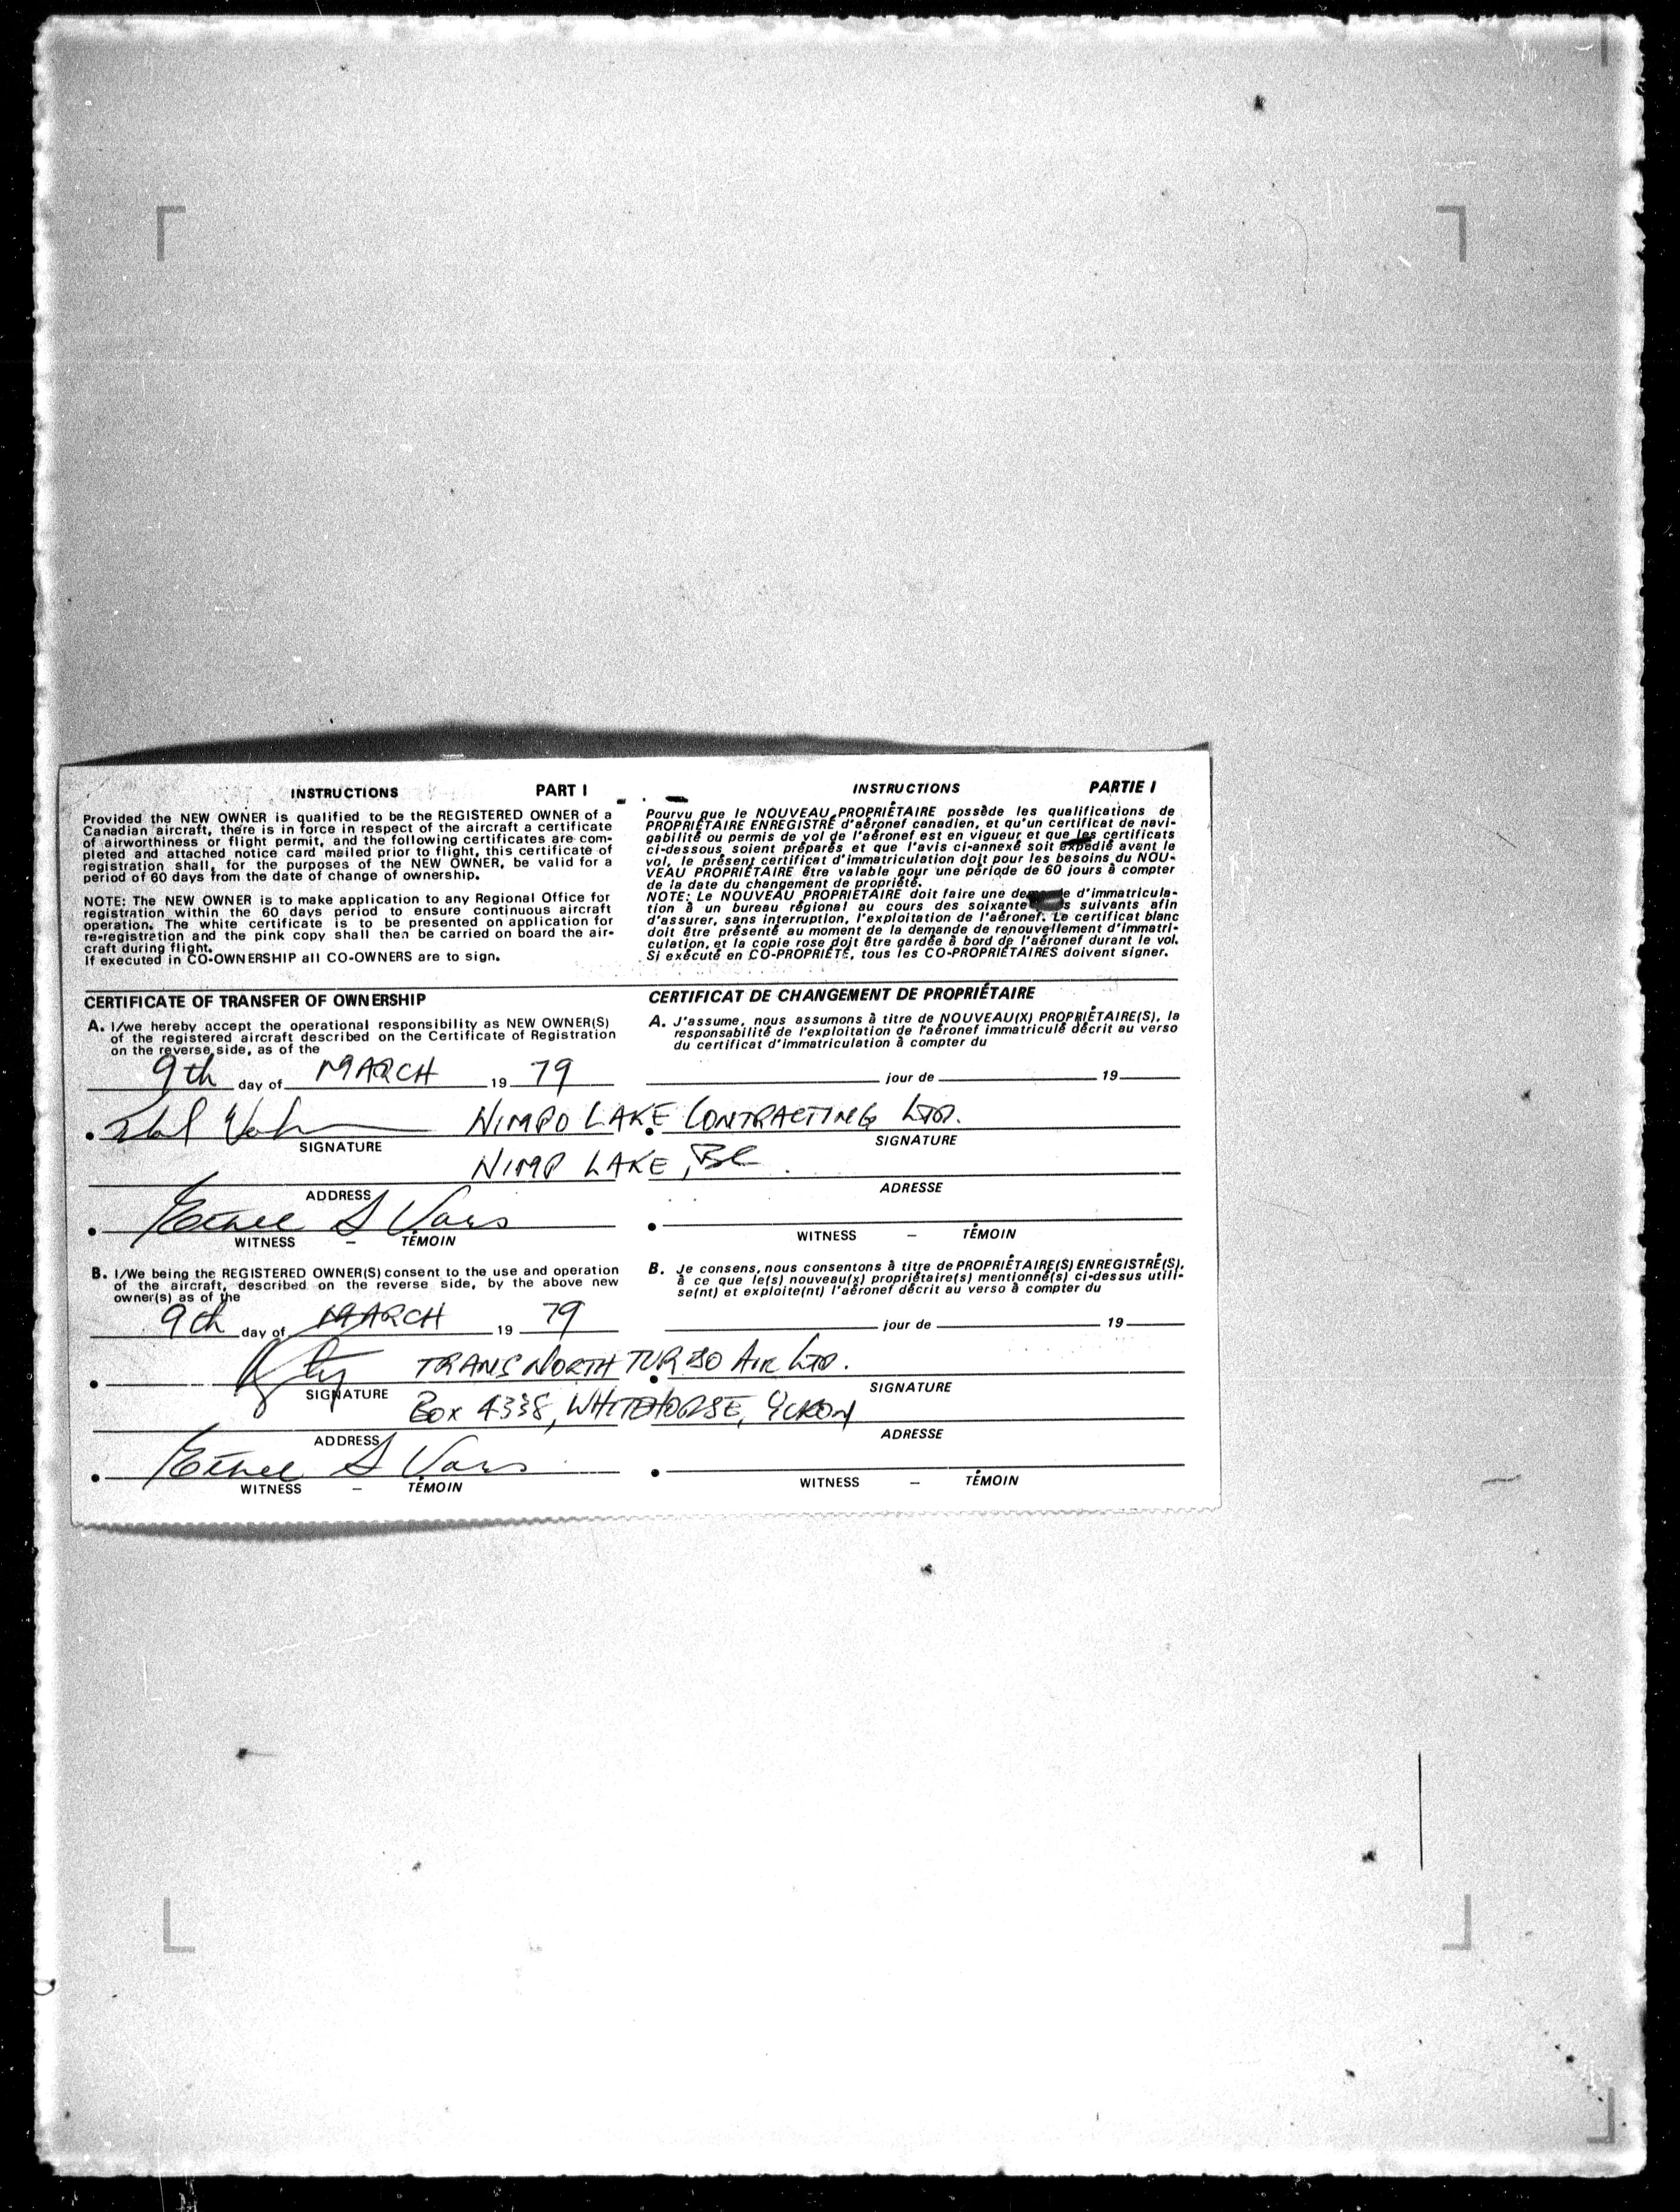 INSTRUCTIONS PART I
Provided the NEW OWNER is qualified to be the REGISTERED OWNER of a
Canadian aircraft, there is in force in respect of the aircraft a certificate
of airworthiness or flight permit, and the following certificates are com-
pleted and attached notice card mailed prior to flight, this certificate of
registration shall, for the purposes of the NEW OWNER, be valid for a
period of 60 days from the date of change of ownership.
NOTE: The NEW OWNER is to make application to any Regional Office for
registration within the 60 days period to ensure continuous aircraft
operation. The white certificate is to be presented on application for
re-registration and the pink copy shall then be carried on board the air-
craft during flight.
If executed in CO-OWNERSHIP all CO-OWNERS are to sign.
INSTRUCTIONS PARTIE I
Pourvu que le NOUVEAU PROPRIÉTAIRE possède les qualifications de
PROPRIÉTAIRE ENREGISTRÉ d'aéronef canadien, et qu'un certificat de navi-
gabilité ou permis de vol de l'aéronef est en vigueur et que les certificats
ci-dessous soient préparés et que l'avis ci-annexé soit expédié avant le
vol, le présent certificat d'immatriculation doit pour les besoins du NOU-
VEAU PROPRIÉTAIRE être valable pour une période de 60 jours à compter
de la date du changement de propriété.
NOTE: Le NOUVEAU PROPRIÉTAIRE doit faire une d'immatricula-
tion à un bureau régional au cours des soixante suivants afin
d'assurer, sans interruption, l'exploitation de l'aéronef. Le certificat blanc
doit être présenté au moment de la demande de renouvellement d'immatri-
culation, et la copie rose doit être gardée à bord de l'aéronef durant le vol.
Si exécuté en CO-PROPRIÉTÉ, tous les CO-PROPRIÉTAIRES doivent signer.
CERTIFICATE OF TRANSFER OF OWNERSHIP
A. I/we hereby accept the operational responsibility as NEW OWNER(S)
of the registered aircraft described on the Certificate of Registration
on the reverse side, as of the
9th day of MARCH 19 79
CERTIFICAT DE CHANGEMENT DE PROPRIÉTAIRE
A. J'assume, nous assumons à titre de NOUVEAU(X) PROPRIÉTAIRE(S), la
responsabilité de l'exploitation de l'aéronef immatriculé décrit au verso
du certificat d'immatriculation à compter du
jour de 19
NIMPO LAKE CONTRACTING LTD.
SIGNATURE SIGNATURE
NIMP LAKE, BC.
ADDRESS ADRESSE
Ethel S Vars
WITNESS – TÉMOIN WITNESS – TÉMOIN
B. I/We being the REGISTERED OWNER(S) consent to the use and operation
of the aircraft, described on the reverse side, by the above new
owner(s) as of the
9th day of MARCH 19 79
B. Je consens, nous consentons à titre de PROPRIÉTAIRE(S) ENREGISTRÉ(S),
à ce que le(s) nouveau(x) propriétaire(s) mentionné(s) ci-dessus utili-
se(nt) et exploite(nt) l'aéronef décrit au verso à compter du
jour de 19
TRANS NORTH TURBO AIR LTD.
SIGNATURE SIGNATURE
BOX 4338, WHITEHORSE, YUKON
ADDRESS ADRESSE
Ethel S Vars
WITNESS – TÉMOIN WITNESS – TÉMOIN